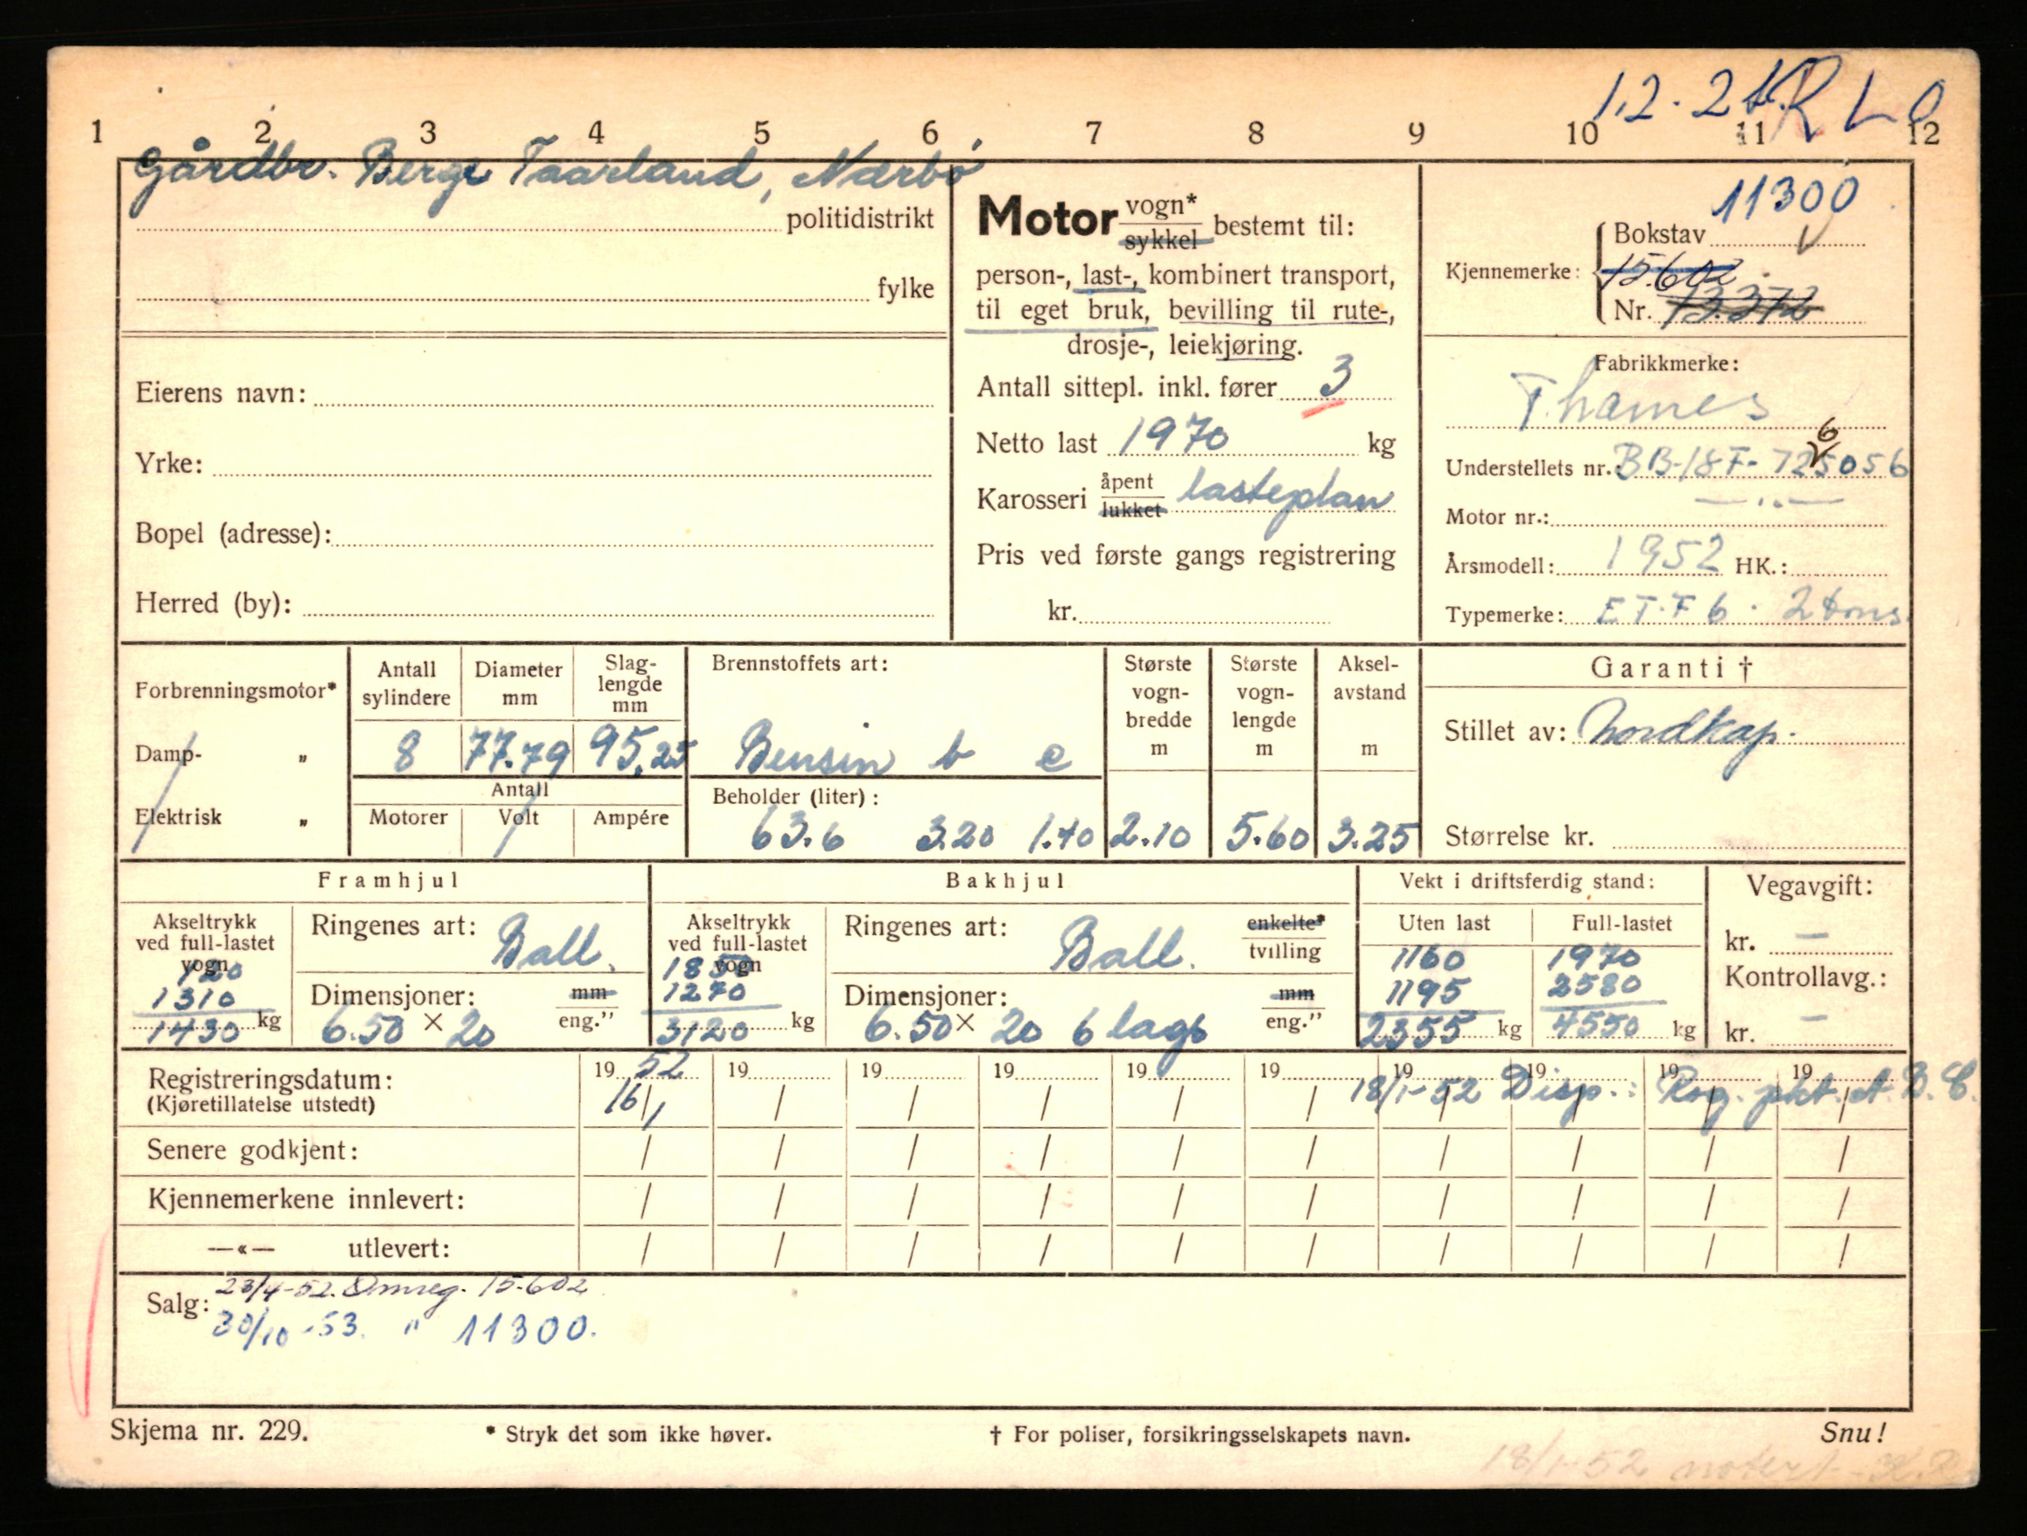 12-24 R L O
1 2 3 4 5 6 7 8 9 10 11 12
Gårdbr. Berge Taarland, Nærbø
politidistrikt
fylke
Eierens navn:
Yrke:
Bopel (adresse):
Herred (by):
Motor vogn* sykkel bestemt til:
person-, last-, kombinert transport,
til eget bruk, bevilling til rute-,
drosje-, leiekjøring.
Antall sittepl. inkl. fører 3
Netto last 1970 kg
Karosseri åpent lukket lasteplan
Pris ved første gangs registrering
kr.
11300
Bokstav
Kjennemerke: 15.602
Nr. 13.372
Fabrikkmerke:
Thames
6
Understellets nr. BB-18F-725056
Motor nr.: — " —
Årsmodell: 1952 HK.:
Typemerke: ETF6. 2 tons.
Forbrenningsmotor*
Damp- "
Elektrisk "
Antall sylindere Diameter mm Slag-lengde mm
8 77.79 95.25
Antall
Motorer Volt Ampére
Brennstoffets art:
Bensin b c
Beholder (liter):
63.6 3.20 1.40
Største vogn-bredde m
2.10
Største vogn-lengde m
5.60
Aksel-avstand m
3.25
Garanti †
Stillet av: Nordkap.
Størrelse kr.
Framhjul
Akseltrykk ved full-lastet vogn
120
1310
1430 kg
Ringenes art: Ball.
Dimensjoner: mm eng."
6.50 × 20
Bakhjul
Akseltrykk ved full-lastet vogn
1850
1270
3120 kg
Ringenes art: Ball. enkelte* tvilling
Dimensjoner: mm eng."
6.50 × 20 6 lags
Vekt i driftsferdig stand:
Uten last Full-lastet
1160 1970
1195 2580
2355 kg 4550 kg
Vegavgift:
kr. —
Kontrollavg.:
kr. —
19 52 19 19 19 19 19 19 19 19 19
Registreringsdatum: 16/1 / / / / / 18/1-52 Disp.: Rog. pkt. A. B. C.
(Kjøretillatelse utstedt)
Senere godkjent: / / / / / / / / / /
Kjennemerkene innlevert: / / / / / / / / / /
—«— utlevert: / / / / / / / / / /
Salg: 23/4-52. Omreg. 15.602
30/10-53. " 11300.
Skjema nr. 229. * Stryk det som ikke høver. † For poliser, forsikringsselskapets navn. Snu!
18/1-52 notert